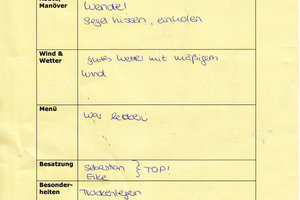 Manöver
Wende!
Segel hissen, einholen
Wind &
Wetter
gutes Wetter mit mäßigem
Wind
Menü
War lecker
Besatzung
Sebastian
Elke
} TOP!
Besonder-
heiten
Trockenlegen